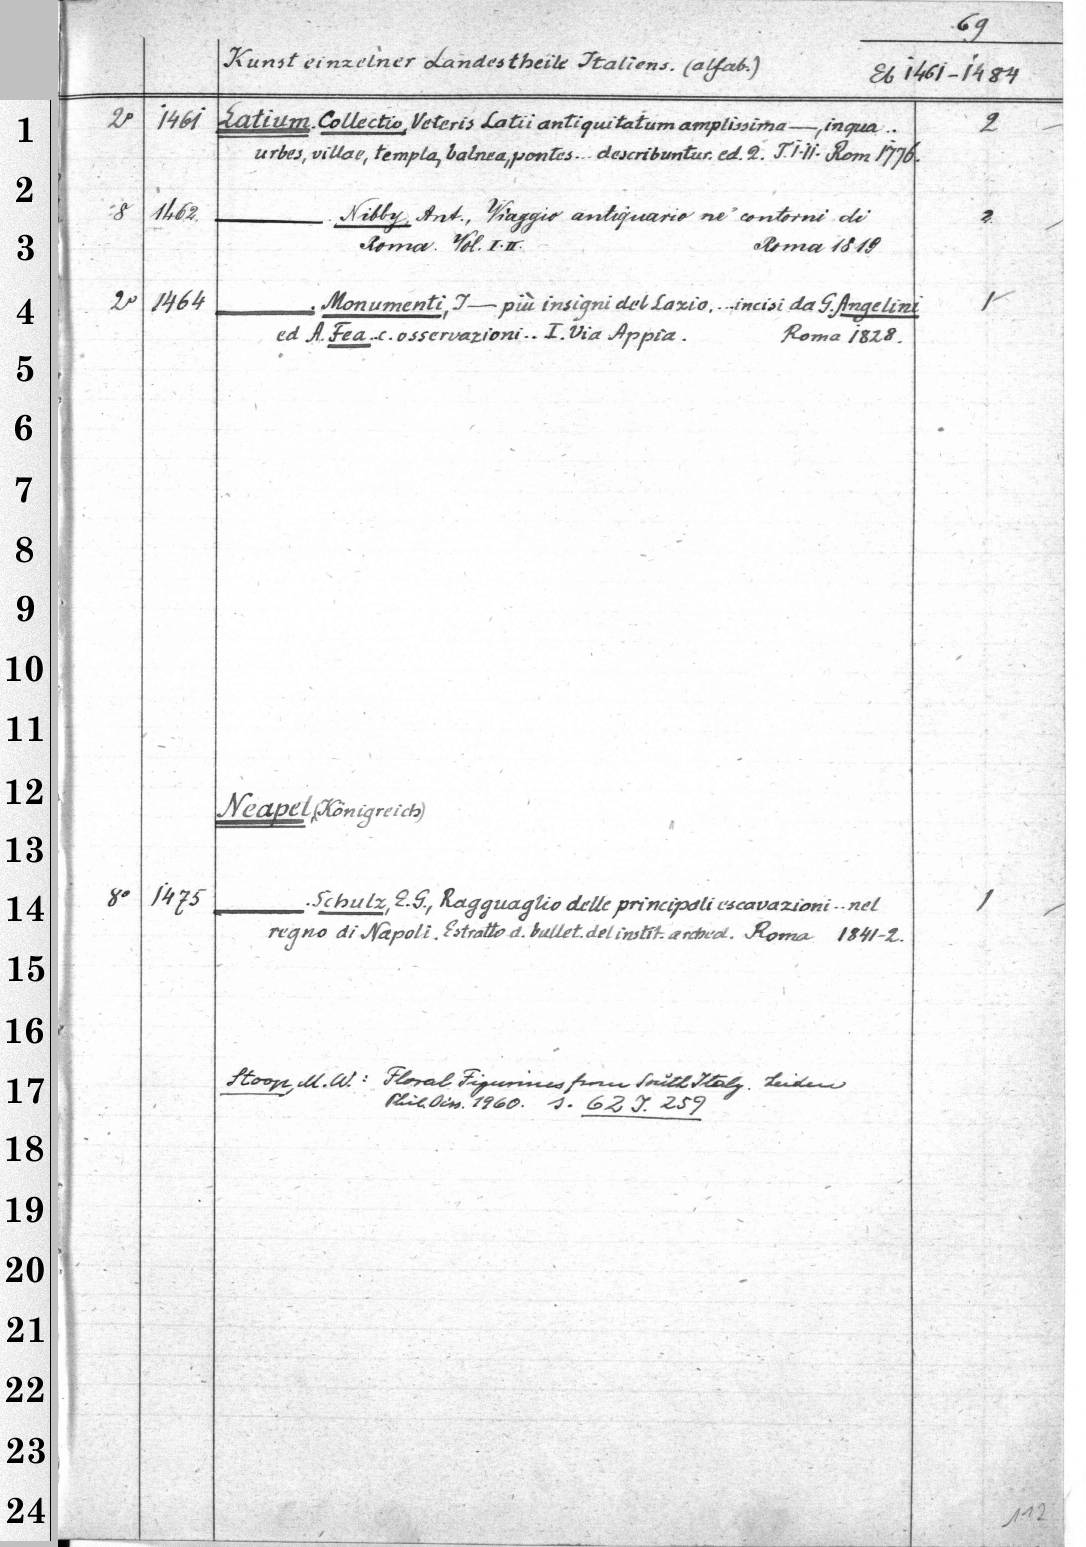 69
Kunst einzelner Landestheile Italiens. (alfab.)
Eb 1461-1484
1 2° 1461 Latium. Collectio, Veteris Latii antiquitatum amplissima —, in qua .. 2 —
urbes, villae, templa, balnea, pontes... describuntur. ed. 2. T. I-II. Rom 1776.
2 8 1462. ——— . Nibby, Ant., Viaggio antiquario ne' contorni di 2.
3 Roma. Vol. I-II. Roma 1819
4 2° 1464 ——— . Monumenti, I — più insigni del Lazio, ... incisi da G. Angelini 1
ed A. Fea .. c. osservazioni .. I. Via Appia. Roma 1828.
5
6
7
8
9
10
11
12 Neapel, (Königreich)
13
14 8° 1475 ——— . Schulz, E. G., Ragguaglio delle principali escavazioni .. nel 1
regno di Napoli. Estratto d. bullet. del instit. archeol. Roma 1841-2.
15
16
17 Stoop, M. W.: Floral Figurines from South Italy. Leiden
Phil. Diss. 1960. s. 62 J. 259
18
19
20
21
22
23
24
112